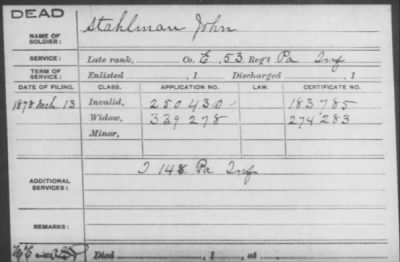 DEAD
NAME OF SOLDIER: Stahlman John
SERVICE: Late rank, Co. E, 53 Reg't Pa Inf
TERM OF SERVICE: Enlisted , 1 Discharged , 1
DATE OF FILING. CLASS. APPLICATION NO. LAW. CERTIFICATE NO.
1878 Mch 13 Invalid, 250430 183785
Widow, 339278 274283
Minor,
ADDITIONAL SERVICES: I 148 Pa Inf
REMARKS:
Died , 1 , at